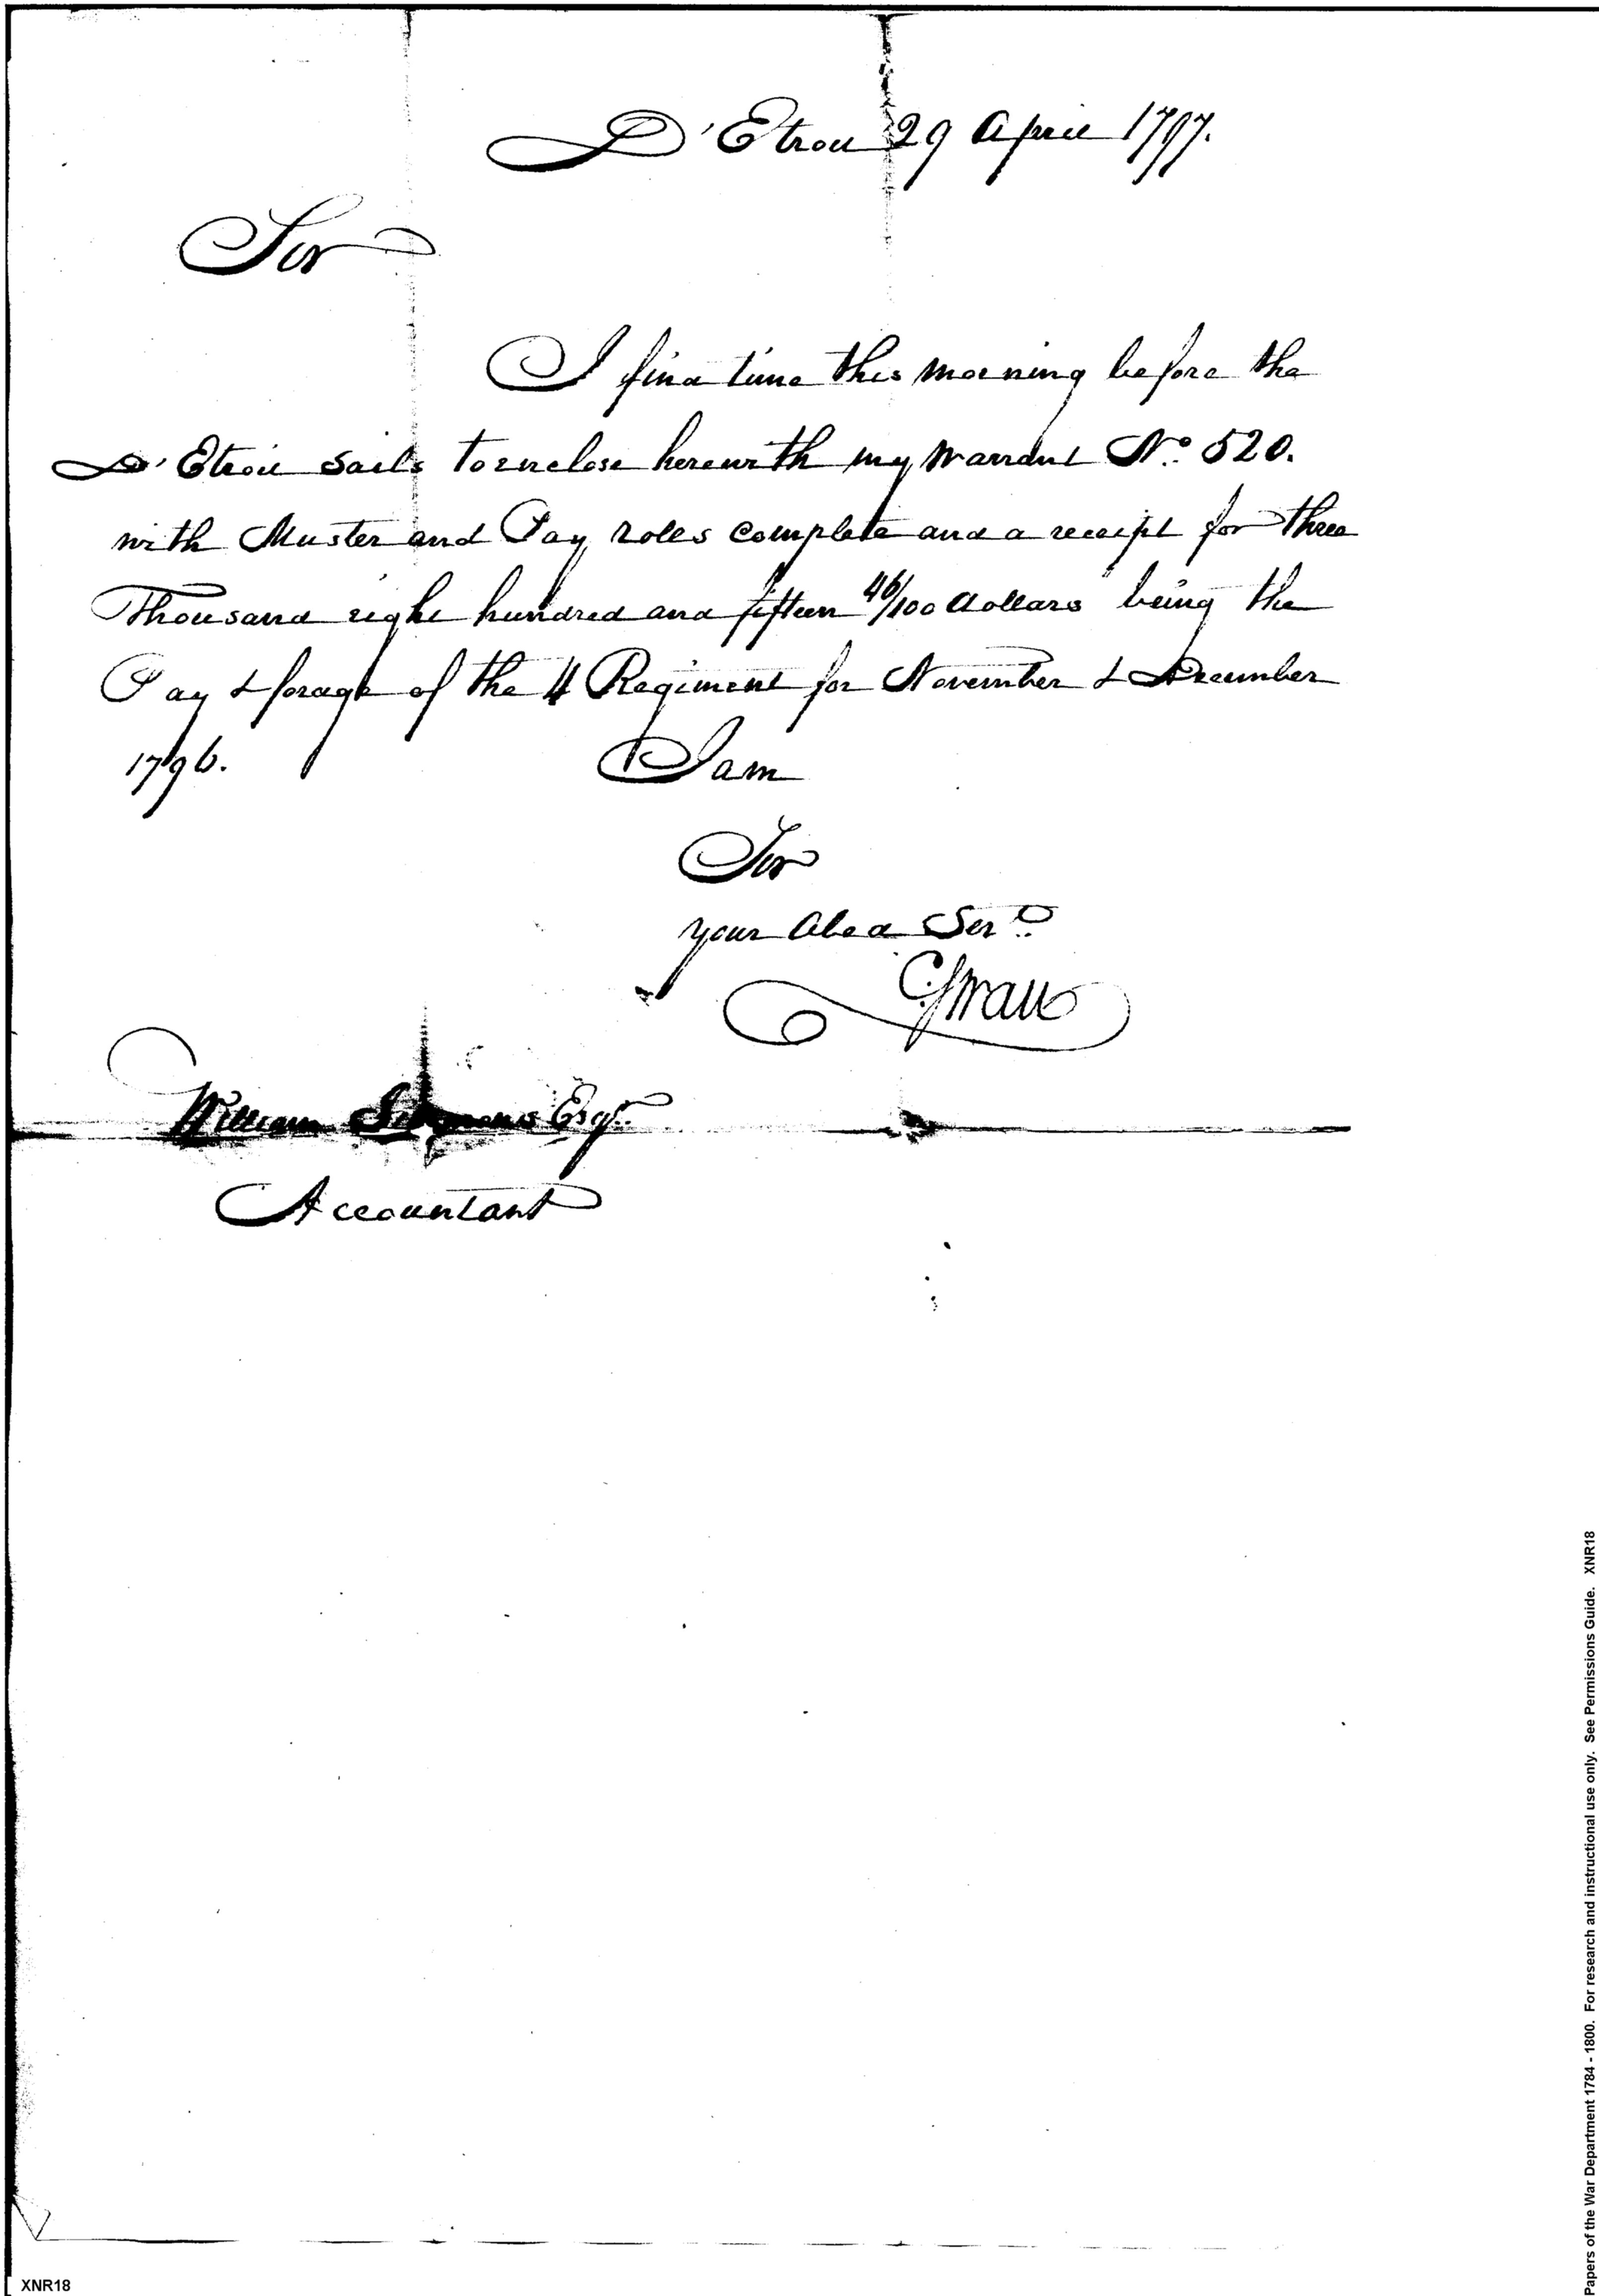 D'Etroit 29 April 1797.
Sir
I find time this morning before the
D'Etroit sails to enclose herewith my Warrant No. 520.
with Muster and Pay rolls complete and a receipt for three
Thousand eight hundred and fifteen 46/100 dollars being the
Pay & forage of the 4 Regiment for November & December
1796. I am
Sir
your Obed Sert.
C. Swan
William Simmons Esqr.
Accountant
XNR18
Papers of the War Department 1784 - 1800. For research and instructional use only. See Permissions Guide. XNR18